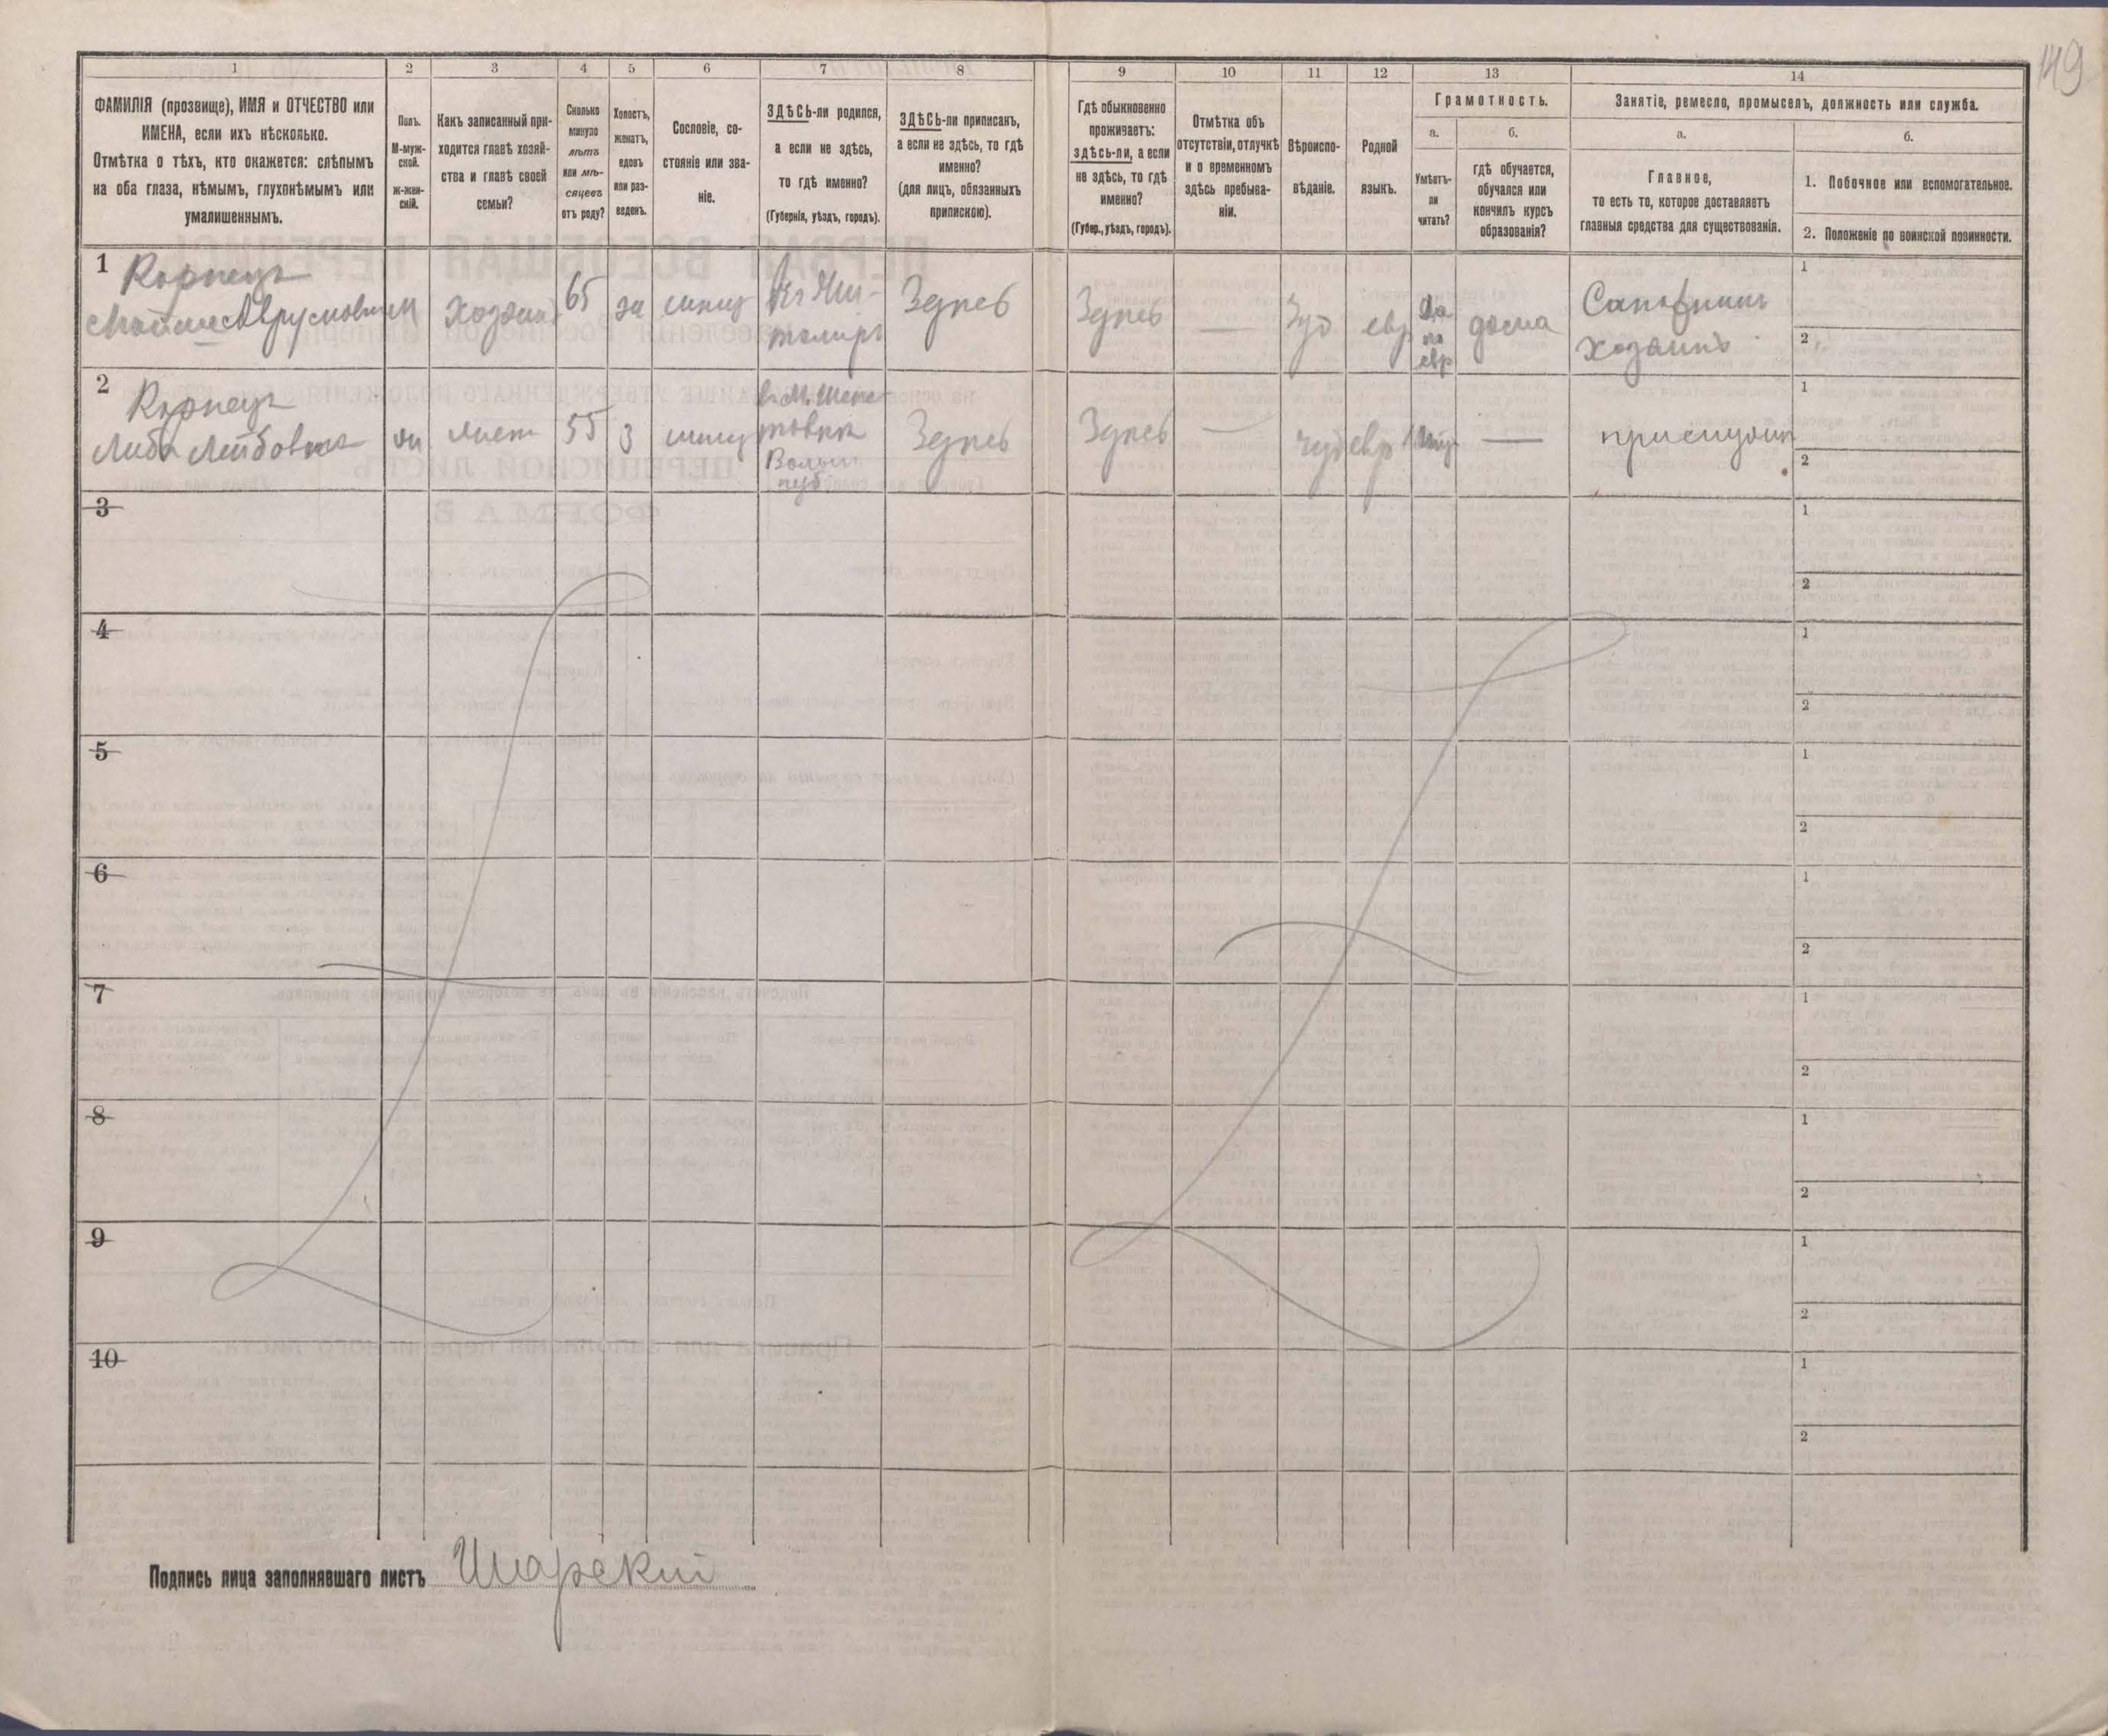 149
1 2 3 4 5 6 7 8 9 10 11 12 13 14
ФАМИЛІЯ (прозвище), ИМЯ и ОТЧЕСТВО или
ИМЕНА, если ихъ нѣсколько.
Отмѣтка о тѣхъ, кто окажется: слѣпымъ
на оба глаза, нѣмымъ, глухонѣмымъ или
умалишеннымъ.
Полъ.
М-муж-
ской.
ж-жен-
скій.
Какъ записанный при-
ходится главѣ хозяй-
ства и главѣ своей
семьи?
Сколько
минуло
лѣтъ
или мѣ-
сяцевъ
отъ роду?
Холостъ,
женатъ,
вдовъ
или раз-
веденъ.
Сословіе, со-
стояніе или зва-
ніе.
ЗДѢСЬ-ли родился,
а если не здѣсь,
то гдѣ именно?
(Губернія, уѣздъ, городъ).
ЗДѢСЬ-ли приписанъ,
а если не здѣсь, то гдѣ
именно?
(для лицъ, обязанныхъ
припискою).
Гдѣ обыкновенно
проживаетъ:
здѣсь-ли, а если
не здѣсь, то гдѣ
именно?
(Губер., уѣздъ, городъ).
Отмѣтка объ
отсутствіи, отлучкѣ
и о временномъ
здѣсь пребыва-
ніи.
Вѣроиспо-
вѣданіе.
Родной
языкъ.
Грамотность.
а.
Умѣетъ-
ли
читать?
б.
гдѣ обучается,
обучался или
кончилъ курсъ
образованія?
Занятіе, ремесло, промыселъ, должность или служба.
а.
Главное,
то есть то, которое доставляетъ
главныя средства для существованія.
б.
1. Побочное или вспомогательное.
2. Положеніе по воинской повинности.
1
Корнецъ
м
Хозяинъ
65
Здѣсь
Здѣсь
—
евр
Да
по
евр
дома
Сапожникъ
Хозяинъ
1
2
2
Корнецъ
Либа Лейбовна
55
Волын
губ
Здѣсь
Здѣсь
—
евр
—
1
2
3
1
2
4
1
2
5
1
2
6
1
2
7
1
2
8
1
2
9
1
2
10
1
2
Подпись лица заполнявшаго листъ